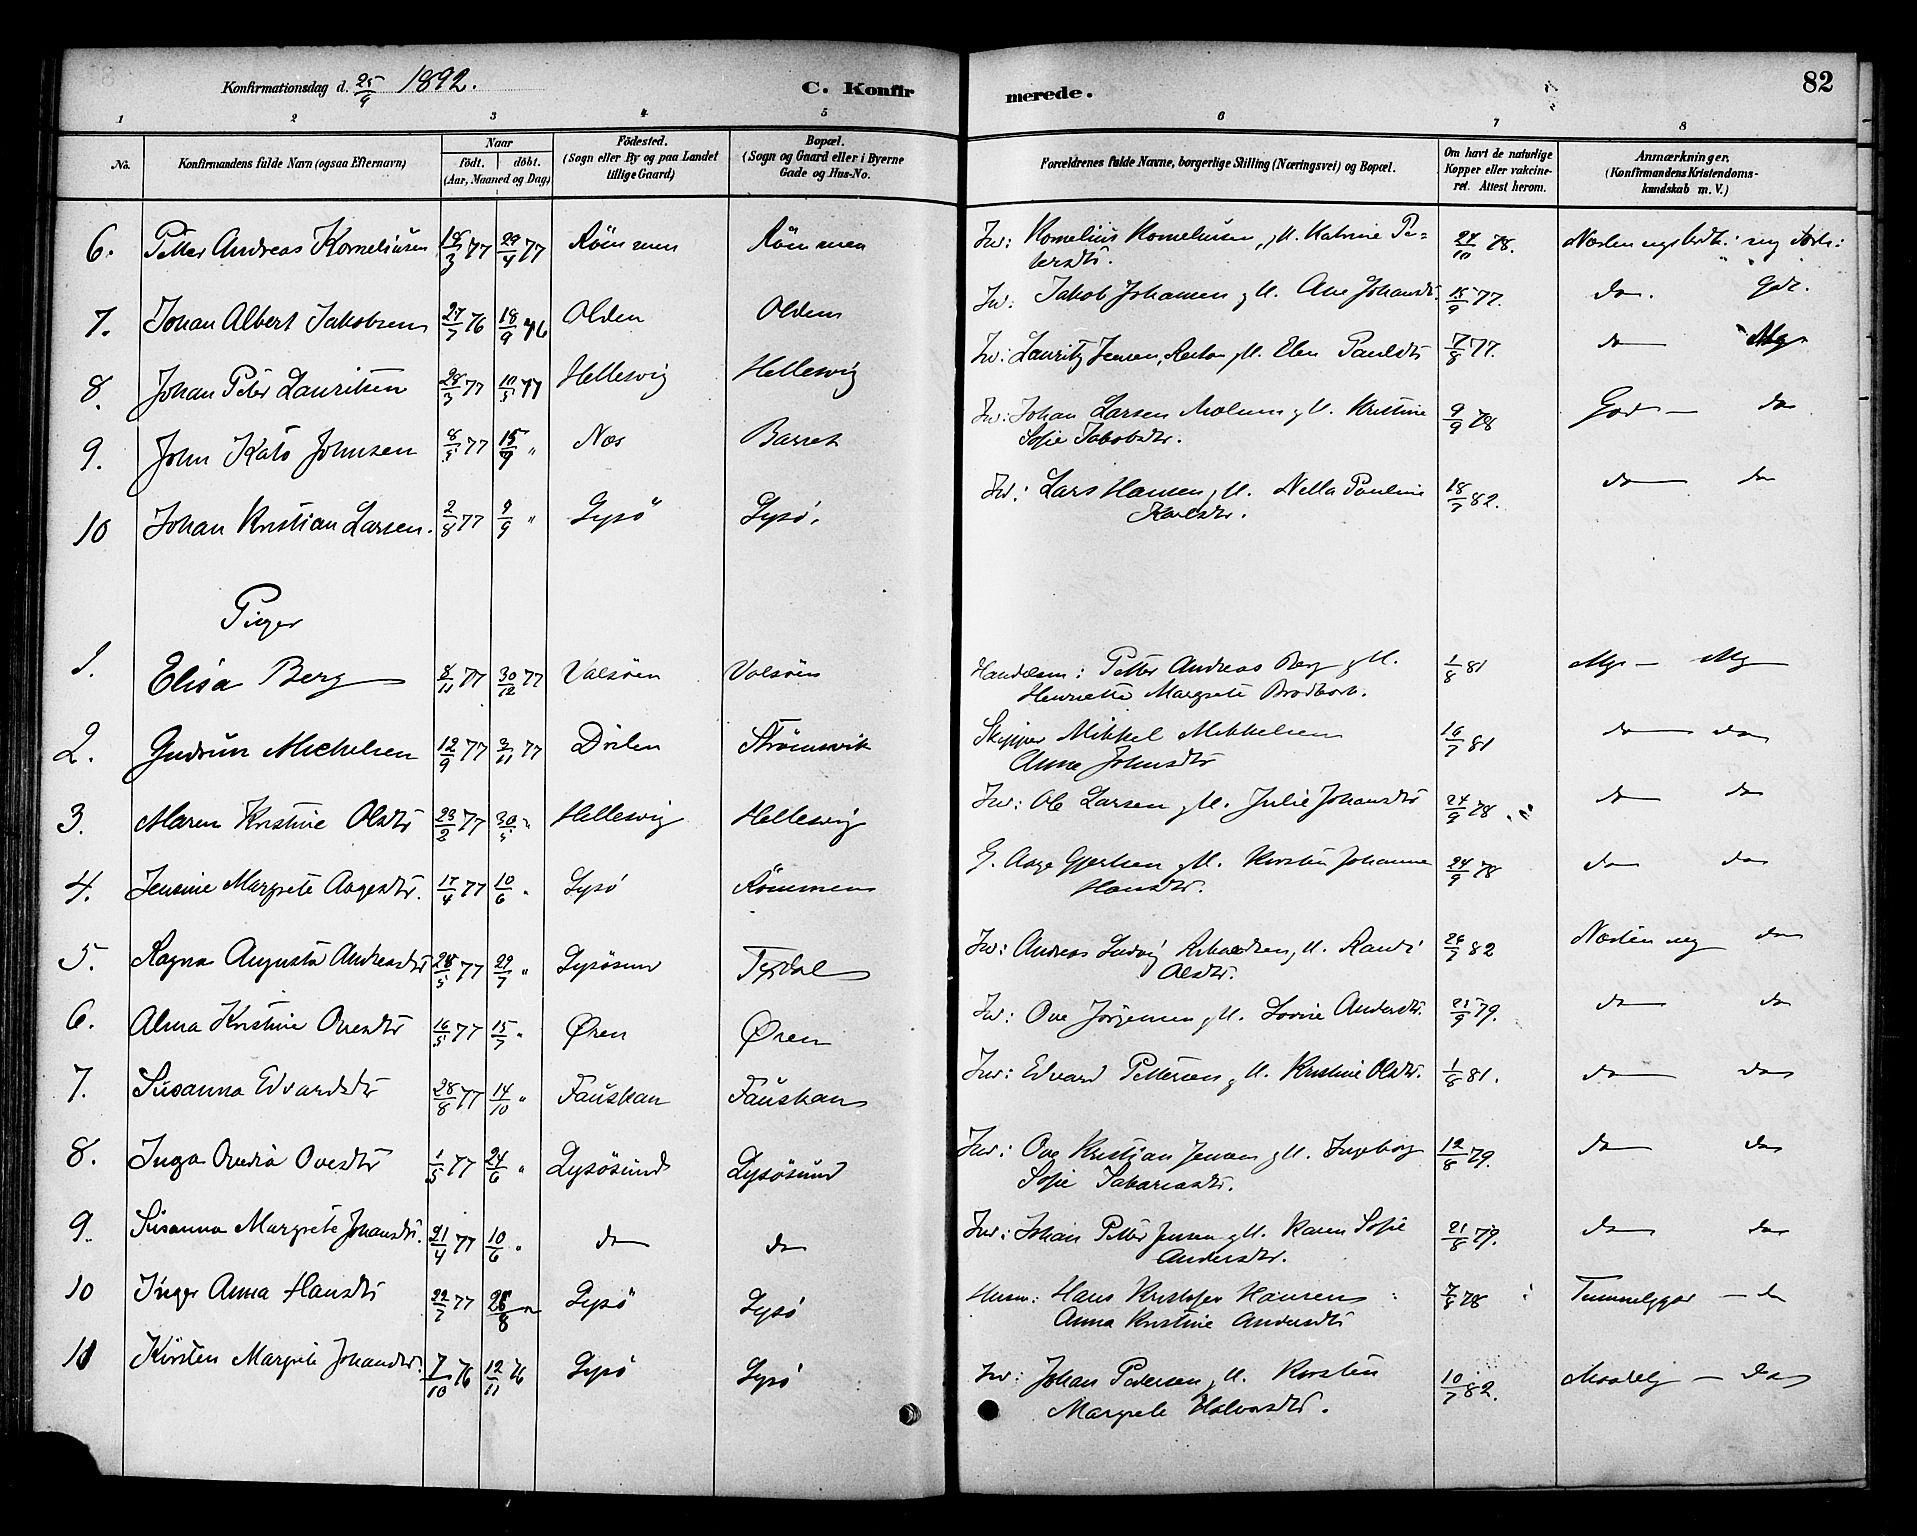 Konfirmationsdag d. 25/9 1892.
C. Konfir
merede.
82
1 2 3 4 5 6 7 8
No.
Konfirmandens fulde Navn (ogsaa Efternavn)
Naar
födt. döbt.
(Aar, Maaned og Dag)
Födested.
(Sogn eller By og paa Landet
tillige Gaard)
Bopæl.
(Sogn og Gaard eller i Byerne
Gade og Hus-No.
Forældrenes fulde Navne, borgerlige Stilling (Næringsvei) og Bopæl.
Om havt de naturlige
Kopper eller vakcine-
ret. Attest herom.
Anmærkninger.
(Konfirmandens Kristendoms-
kundskab m. V.)
6. Petter Andreas Korneliusen 18/3 77 29/4 77 Römmen Römmen Inr: Kornelius Korneliusen, g M. Katrine Pe-
tersdtr. 24/10 78. Næsten
7. Johan Albert Jakobsen 27/7 76 18/9 76 Olden Olden Inr: Jakob Johansen g M. Ane Johansdtr. 15/9 77. do. Godt.
8. Johan Peter Lauritsen 28/3 77 10/5 77 Hellesvig Hellesvig Inr: Lauritz Jensen, g M. Elen Paulsdtr 7/8 77. do Mg
9. John Kato Johnsen 8/5 77 15/9 " Næs Barset Inr: Johan Larsen g M. Kristine
Sofie Jakobsdtr. 9/9 78 God do
10 Johan Kristian Larsen. 2/8 77 9/9 " Lysö Lysö. Inr: Lars Hansen g M. Nella Pauline
Karlsdtr. 18/7 82. do do
Piger
1. Elisa Berg 8/11 77 30/12 77 Valsöen Valsöen Handelsm: Petter Andreas Berg g M.
Henriette Margrete Brodkorb. 1/8 81 Mg - Mg
2. Gudrun Michelsen 12/9 77 2/11 77 Strömsvik Skipper Mikkel Mikkelsen
Anne Johnsdtr 16/7 81 do do
3. Maren Kristine Olsdtr 23/2 77 30/5 " Hellesvig Hellesvig Inr: Ole Larsen g M. Julie Johansdtr 24/9 78. do do
4. Jensine Margrete Aagesdtr. 17/4 77 10/6 " Lysö Römmen G. Aage Gjertsen g M. Kirsten Johanna
Hansdtr. 24/9 78 do do
5. Ragna Augusta Andreasdtr 28/5 77 22/7 " Lysösund Tejdal Inr: Andreas Ludvig g M. Randi
Olsdtr. 26/7 82 Næsten mg do
6. Alma Kristine Ovesdtr 16/5 77 15/7 " Øren Øren Inr: Ove Jörgensen g M. Lovise Andersdtr. 21/9 79. do do
7. Susanna Edvardsdtr 28/8 77 14/10 " Fauskan Fauskan Inr: Edvard Pettersen g M. Kristine Olsdtr. 1/8 81. do do
8. Inga Ovedia Ovesdtr 1/5 77 24/6 " Lysösund Lysösund Inr: Ove Kristian Jensen g M. Ingeborg
Sofie Sakariasdtr. 12/8 79. do do
9. Susanna Margrete Johansdtr. 21/4 77 10/6 " do do Inr: Johan Petter Jensen g M. Karen Sofie
Andersdtr. 21/8 79. do do
10 Inger Anna Hansdtr 22/7 77 26/8 " Lysö Lysö Husm: Hans Kristofer Hansen
Anna Kristine Andersdtr 7/8 78 Temmelig god - do
11 Kirsten Margrete Johansdtr. 7/10 76 12/11 76 Lysö Lysö Inr: Johan Pedersen g M. Kirsten
Margrete Halvorsdtr. 10/7 82. Maadelig - do